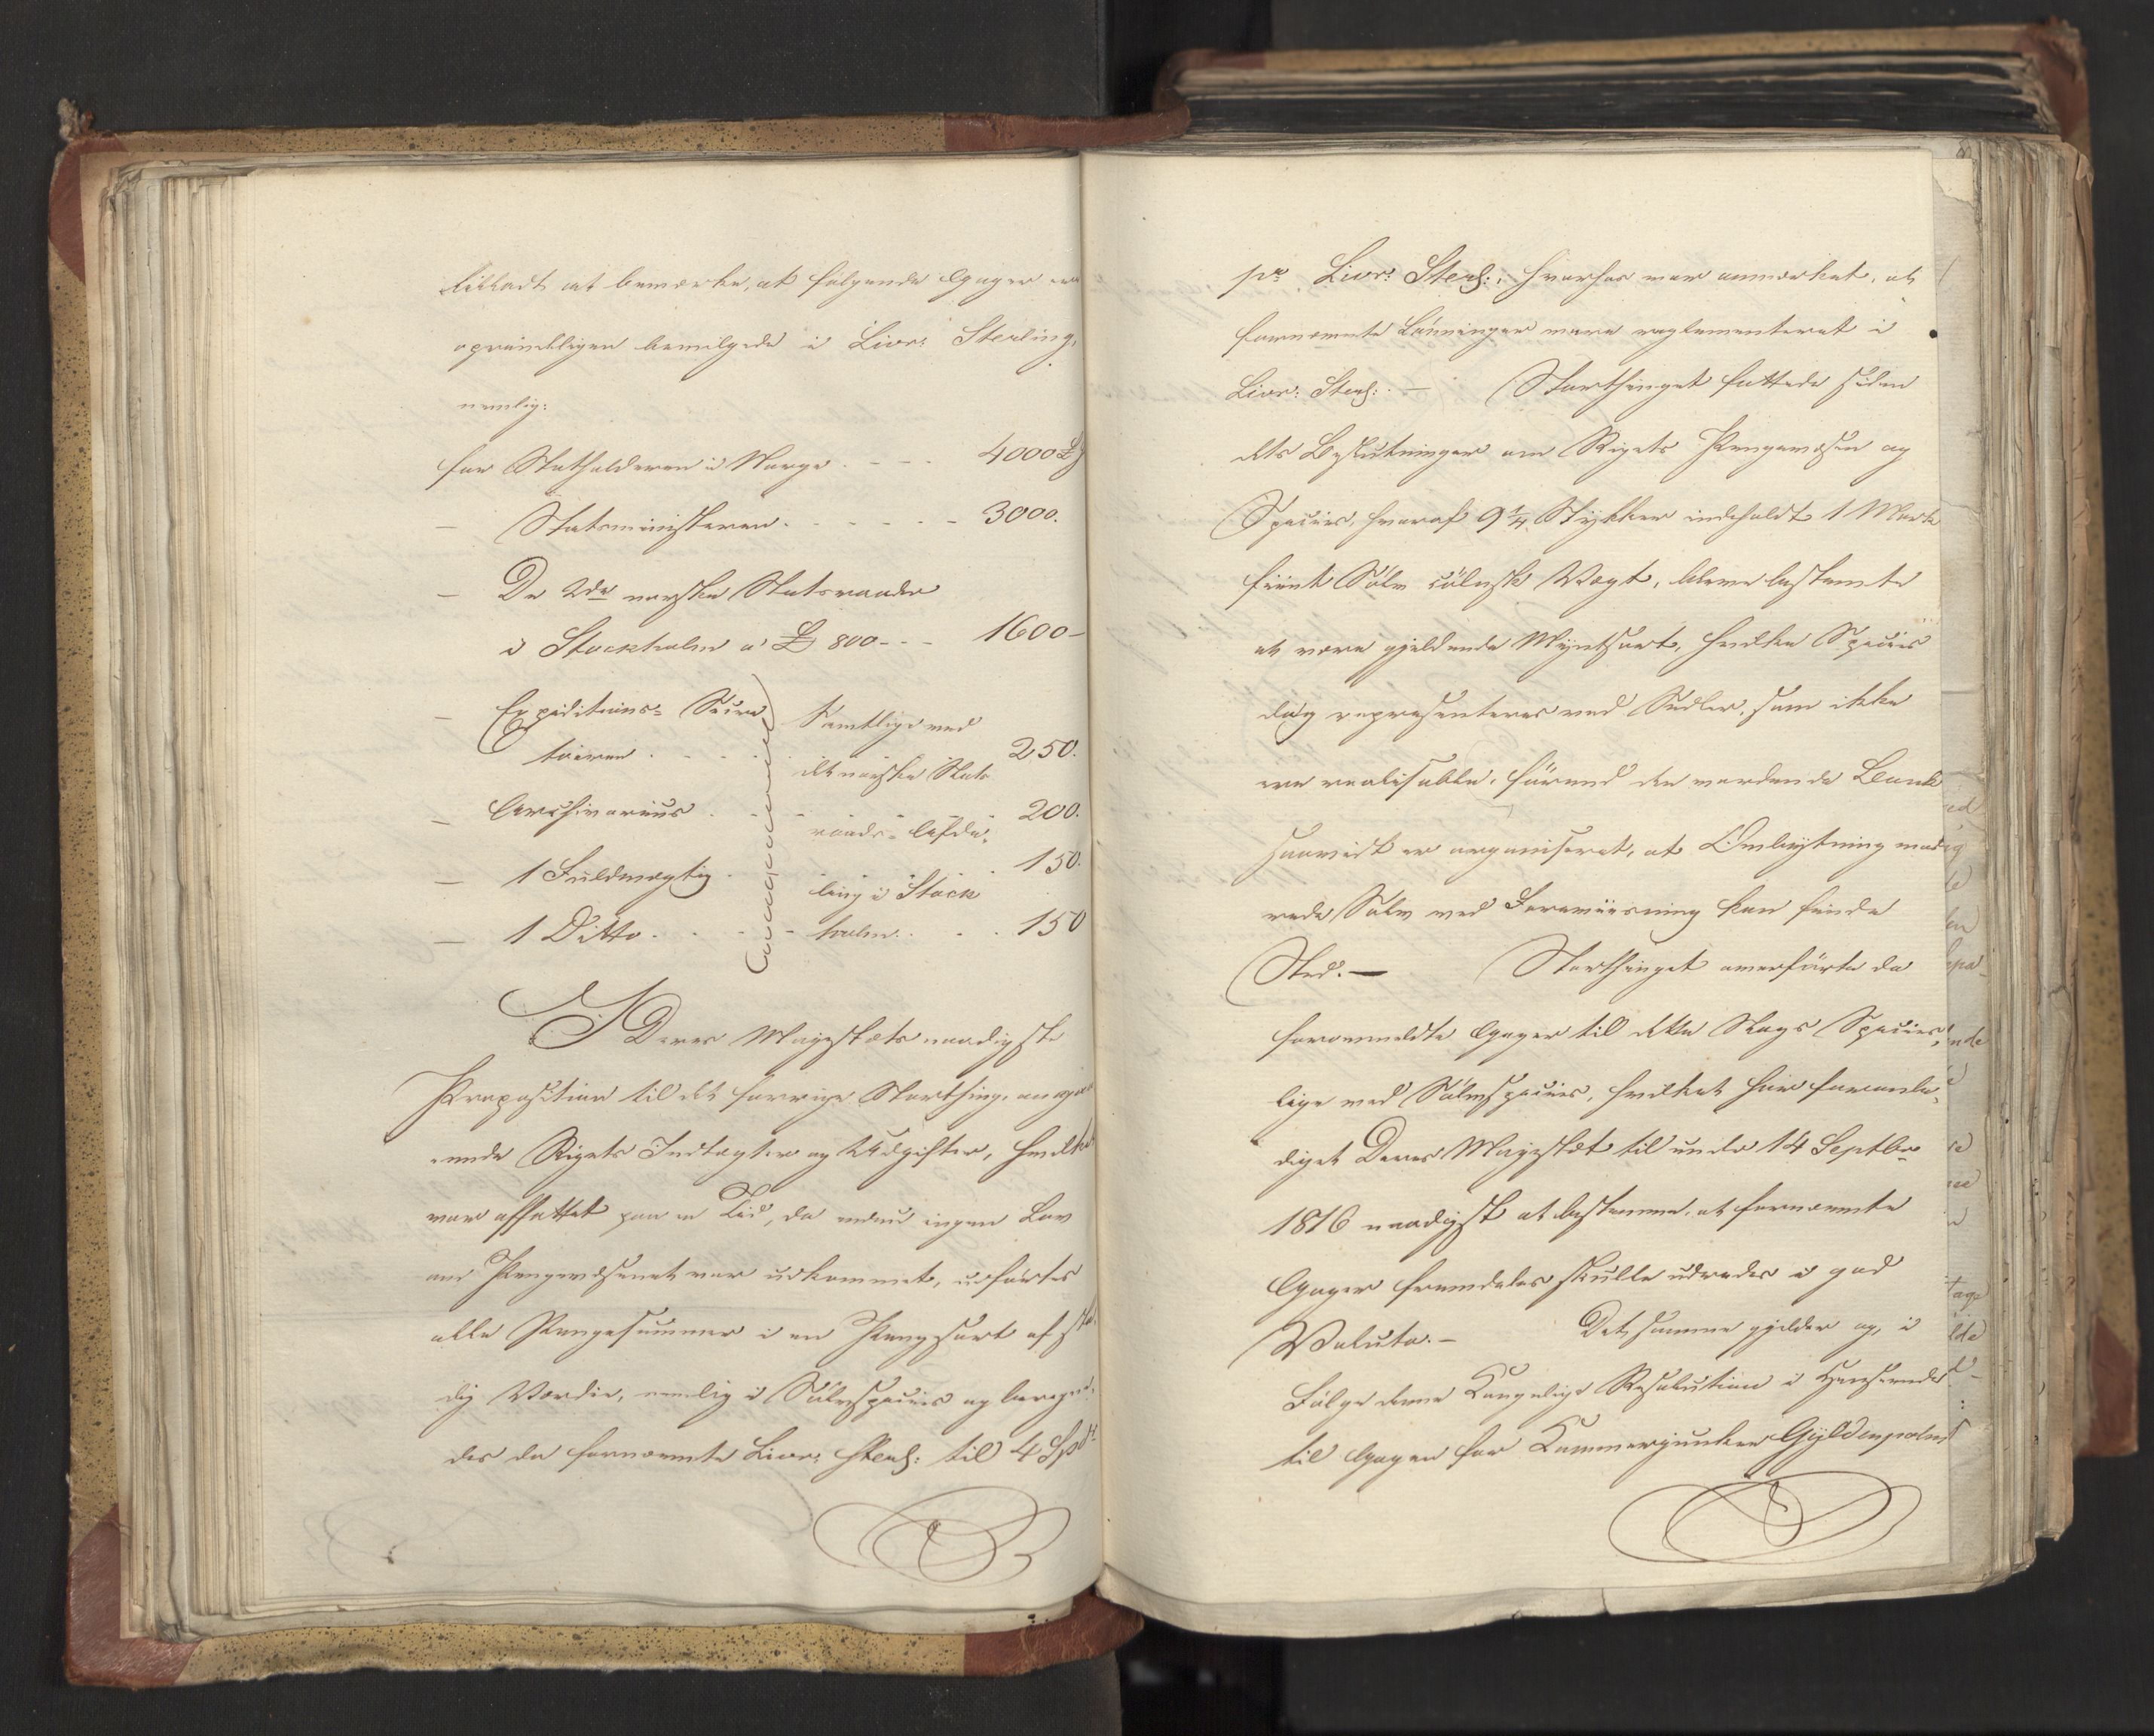 tilladt at bemærke, at følgende Gager ere
oprindeligen bevilgede i Livr: Sterling,
nemlig:
for Statholderen i Norge . - - . 4000 £
— Statsministeren . - - - - - 3000.
— De 2de norske Statsraader
i Stockholm a' £ 800 - - - 1600 -
— Expeditions- Secre
tairen . - - . 250.
— Archivarius . - - 200.
— 1 Fuldmægtig . . . 150.
— 1 Ditto . . - - . . 150
Samtlige ved
det norske Stats
raads- Afde-
ling i Stock
holm.
I Deres Majestæts naadigste
Proposition til det forrige Storthing, angaa
ende Rigets Indtægter og Udgifter, hvilken
var affattet paa en Tid, da endnu ingen Lov
om Pengevæsenet var udkommet, udførtes
alle Pengesummer i en Pengesort af sta-
dig Værdie, nemlig i Sølvspecies og bereg
des da fornævnte Livr: Sterl: til 4 Spd
pr Livr: Sterl:, hvorhos var anmærket, at
fornævnte Lønninger vare reglementeret i
Livr: Sterl: — Storthinget fattede siden
dets Beslutninger om Rigets Pengevæsen og
Species, hvoraf 9¼ Stykker indeholdt 1 Mark
fiint Sølv cølnsk Vægt, bleve bestemte
at være gjeldende Myntsort, hvilke Species
dog representeres ved Sedler, som ikke
ere realisable, førend den vordende Bank
saavidt er organiseret, at Ombytning mod
rede Sølv ved Foreviisning kan finde
Sted. — Storthinget overførte da
foranmeldte Gager til dette Slags Species,
lige med Sølvspecies, hvilket har foranle-
diget Deres Majestæt til under 14 Septbr
1816 naadigst at bestemme, at fornævnte
Gager fremdeles skulle udredes i god
Valuta. — Det samme gjelder og, i
Følge denne Kongelige Resolution i Henseende
til Gagen for Kammerjunker Gyldenpalm